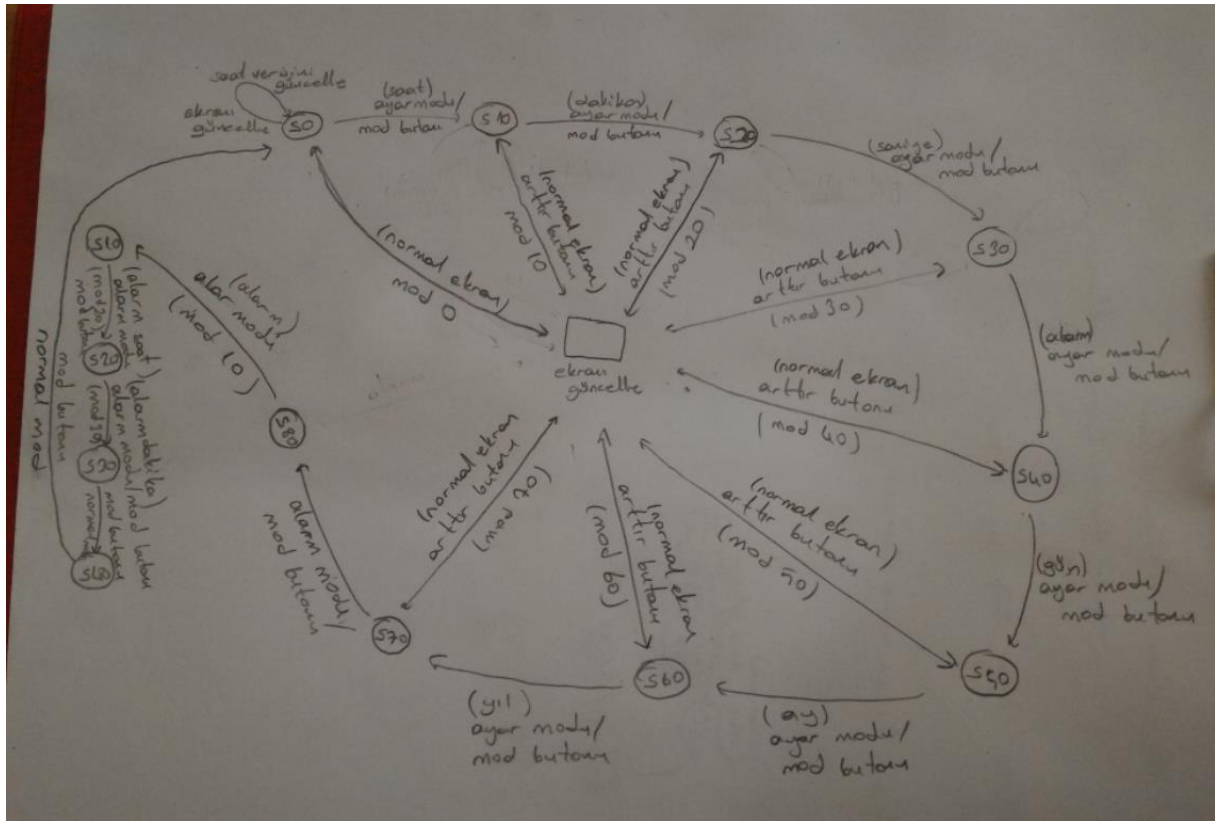 saat verisini
güncelle
ekran
güncelle
S0
(saat)
ayar modu/
mod butonu
S10
(dakika)
ayar modu/
mod butonu
S20
(saniye)
ayar modu/
mod butonu
S30
(alarm)
ayar modu/
mod butonu
S40
(gün)
ayar modu/
mod butonu
S50
(ay)
ayar modu/
mod butonu
S60
(yıl)
ayar modu/
mod butonu
S70
alarm modu/
mod butonu
S80
(alarm)
alar modu
(mod 10)
S10
(alarm saat)
alarm modu
(mod 20)
mod butonu
S20
(alarm dakika)
alarm modu/mod butonu
(mod 30)
S30
mod butonu
S40
mod butonu
normal mod
(normal ekran)
mod 0
(normal ekran)
arttır butonu
mod 10
(normal ekran)
arttır butonu
(mod 20)
(normal ekran)
arttır butonu
(mod 30)
(normal ekran)
arttır butonu
(mod 40)
(normal ekran)
arttır butonu
(mod 50)
(normal ekran
arttır butonu
(mod 60)
(normal ekran
arttır butonu
(mod 70)
ekran
güncelle